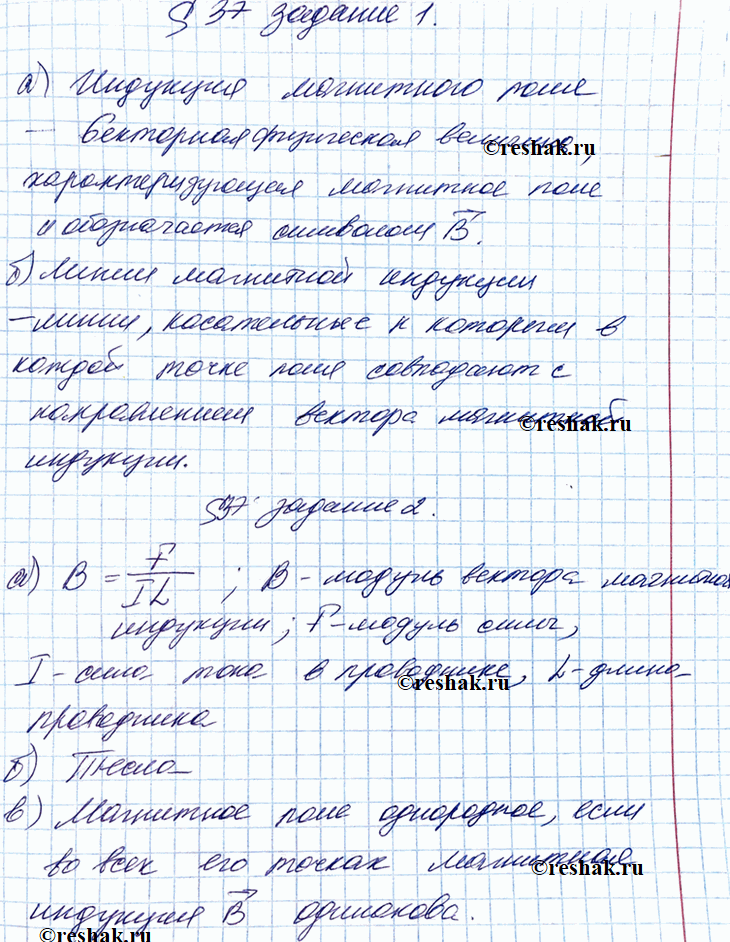 § 37 задание 1.
а) Индукция магнитного поля
- векторная физическая величина,
©reshak.ru
характеризующая магнитное поле
и обозначается символом B⃗.
б) Линии магнитной индукции
- линии, касательные к которым в
каждой точке поля совпадают с
направлением вектора магнитной
©reshak.ru
индукции.
§37 задание 2.
а) B = F/IL ; B - модуль вектора магнитной
индукции; F - модуль силы,
I - сила тока в проводнике, L - длина
©reshak.ru
проводника
б) Тесла
в) Магнитное поле однородное, если
во всех его точках магнитная
©reshak.ru
индукция B⃗ одинакова.
©reshak.ru